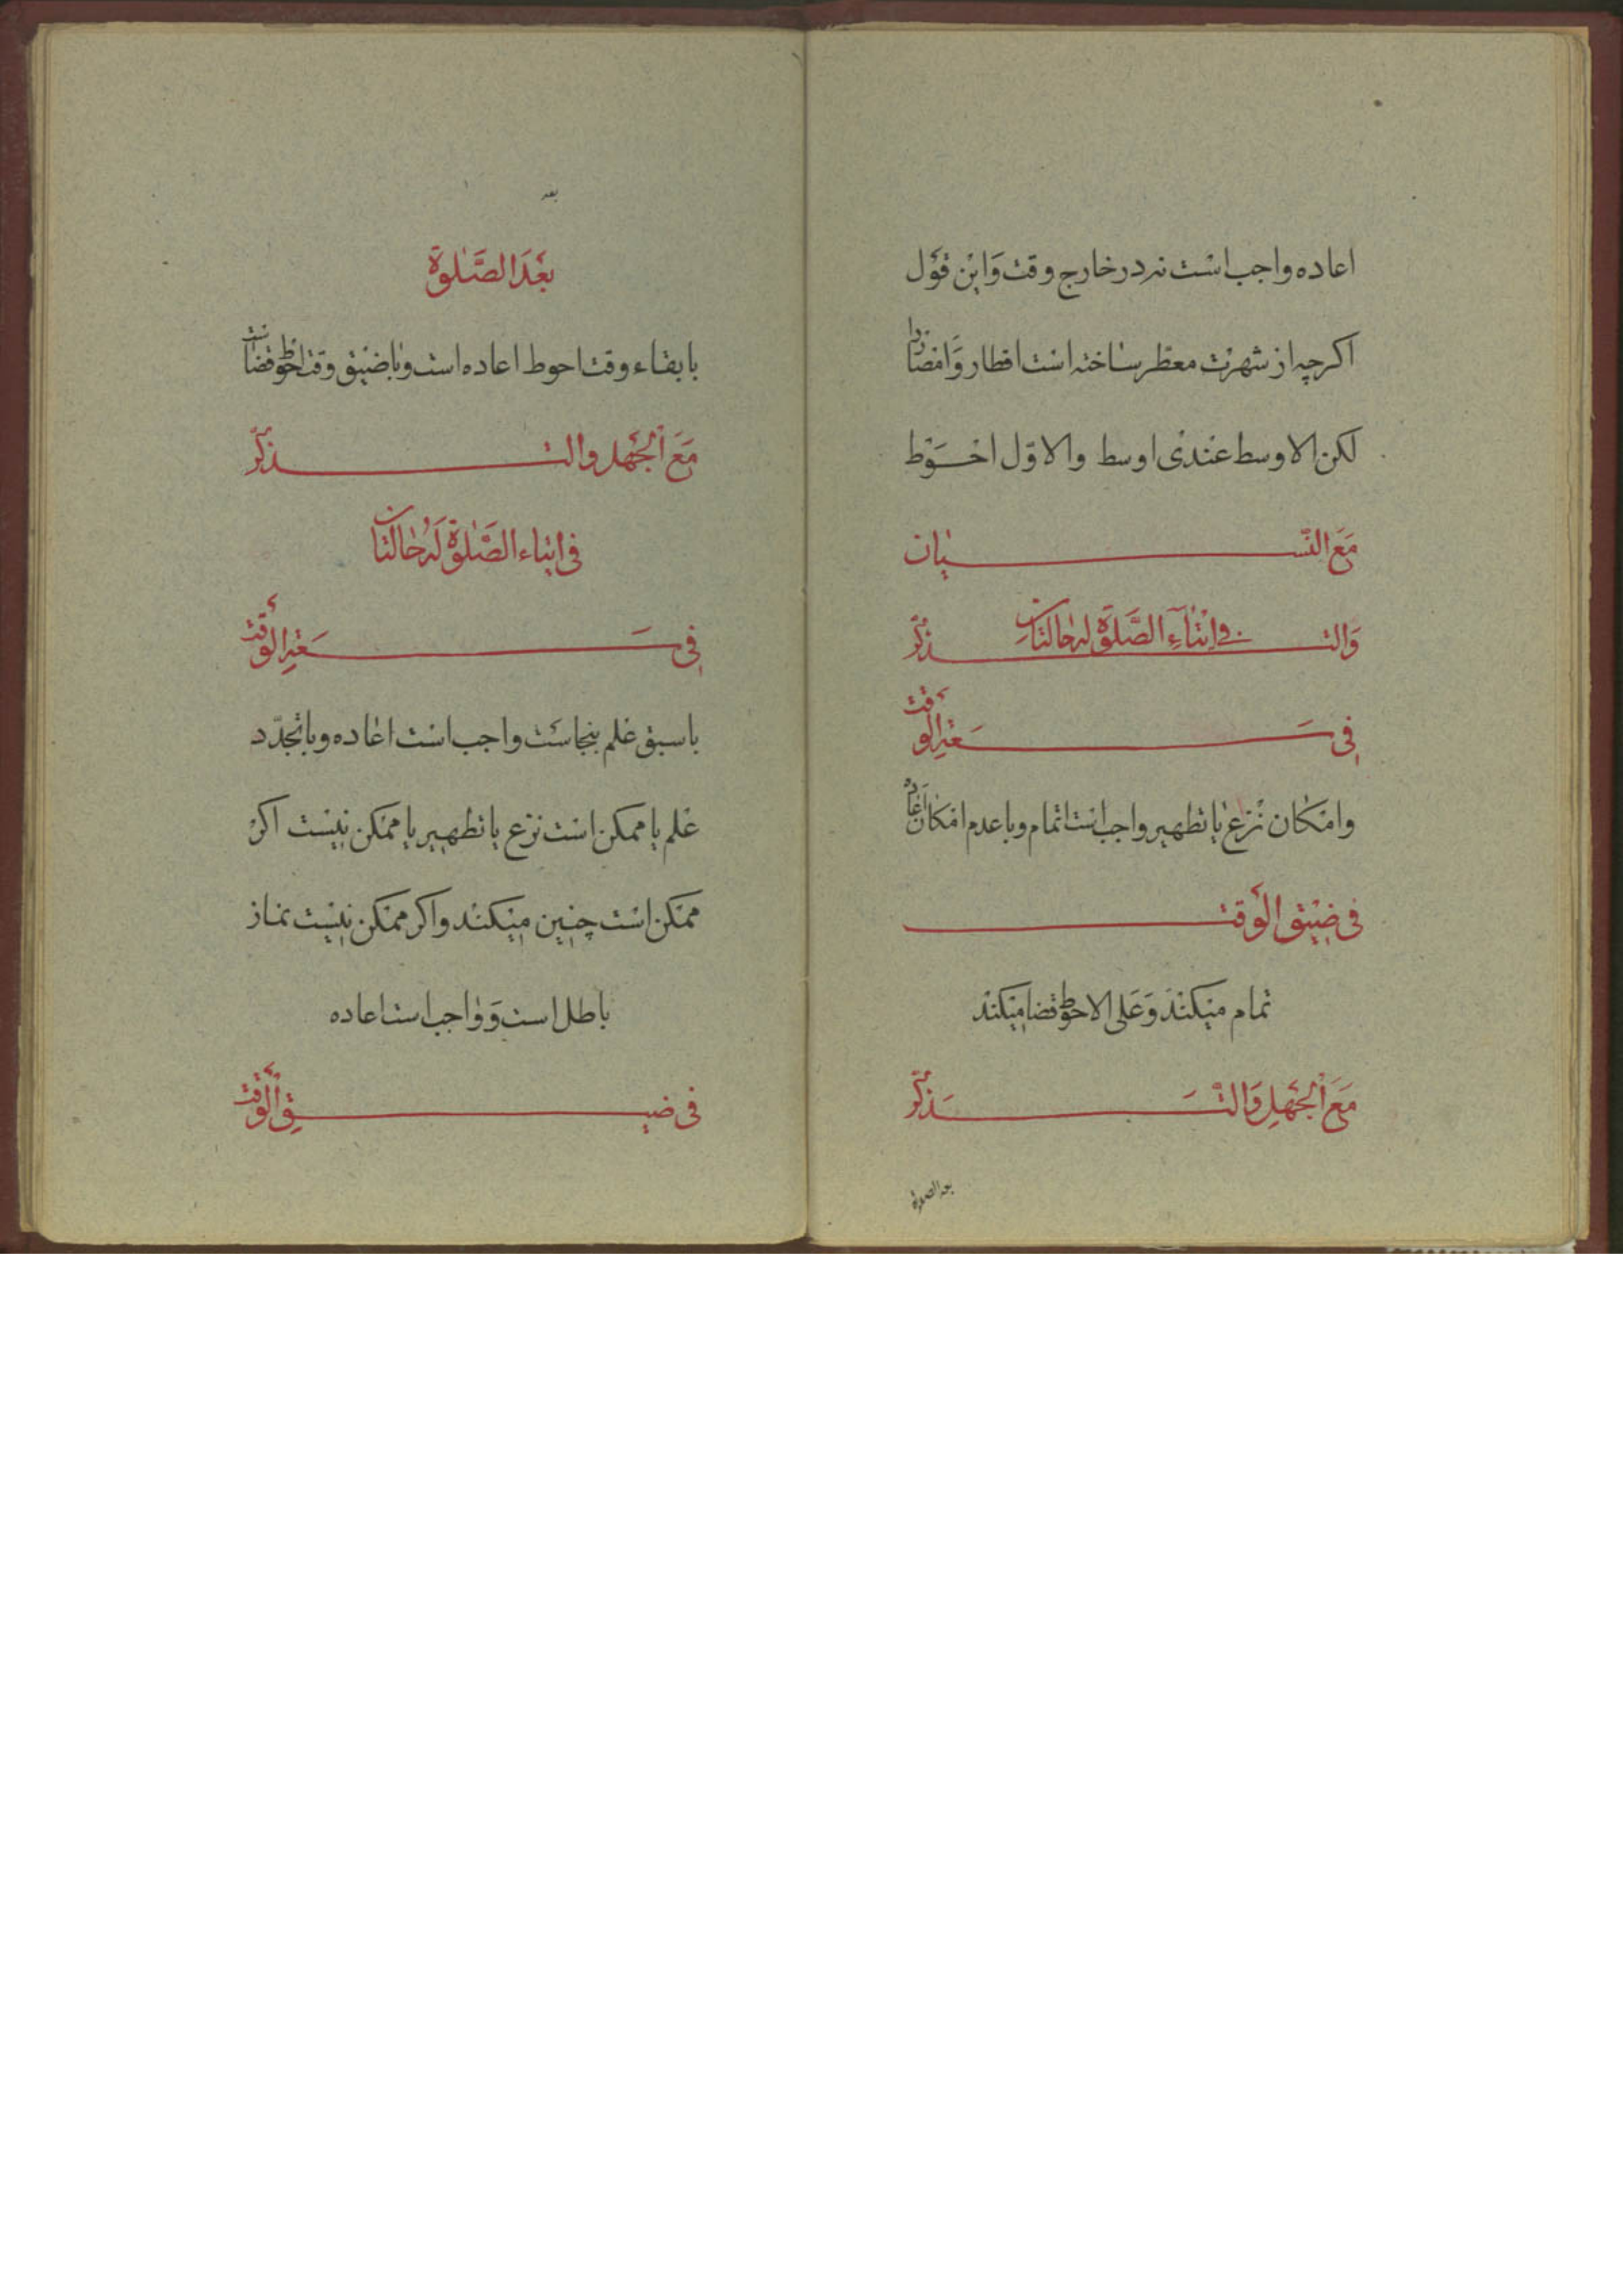 اعاده واجب است نه در خارج وقت وَاین قَول
اکرچه از شهرت معطّر ساخته است اقطار وَامصار را
لکن الاوسط عندی اوسط والاوّل احوَط
مَعَ النّسیان
وَالتذکّر فی اثنآءِ الصَّلوة له حالتانِ
فی سَعَةِ الوَقت
وامکان نزع یا تطهیر واجب است اتمام وبا عدم امکان اعاده
فی ضیق الوَقت
تمام میکند وَعَلی الاحوط قضا میکند
مَعَ الجَهلِ وَالتَّذَکّر
بعد الصلوة
بعد
بَعْدَ الصَّلوة
با بقاء وقت احوط اعاده است وبا ضیق وقت احوط قضا است
مَعَ الجَهل والتذکّر
فی اثناء الصَّلوة لَه حالتان
فی سَعَةِ الوَقت
با سبق علم بنجاست واجب است اعاده وبا تجدّد
علم یا ممکن است نزع یا تطهیر یا ممکن نیست اکر
ممکن است چنین میکند واکر ممکن نیست نماز
باطل است وَواجب است اعاده
فی ضیقِ الوَقت